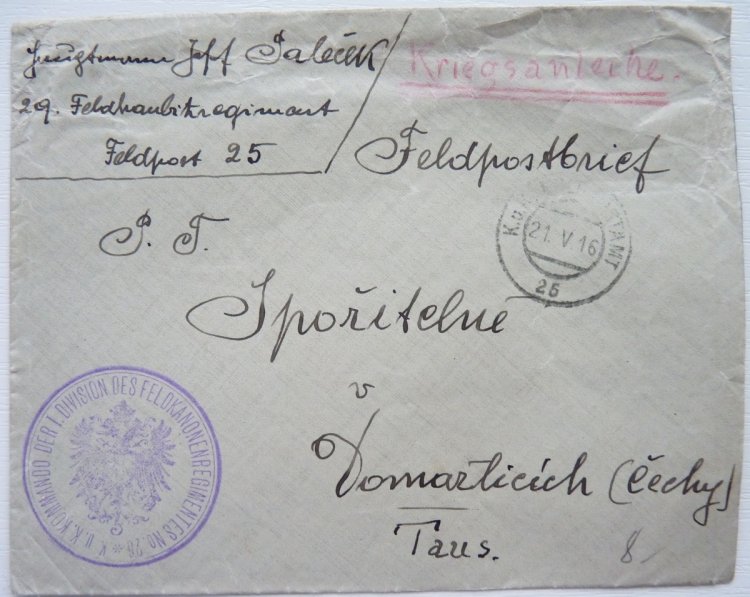 Hauptmann Josf Paleček
29. Feldhaubitzregiment
Feldpost 25
Kriegsanleihe.
Feldpostbrief
P. T.
K.u.K. FELDPOSTAMT
21. V. 16
25
Spořitelně
v
Domažlicích (Čechy)
Taus.
8-
K. U. K. KOMMANDO DER I. DIVISION DES FELDKANONENREGIMENTES No. 26 *